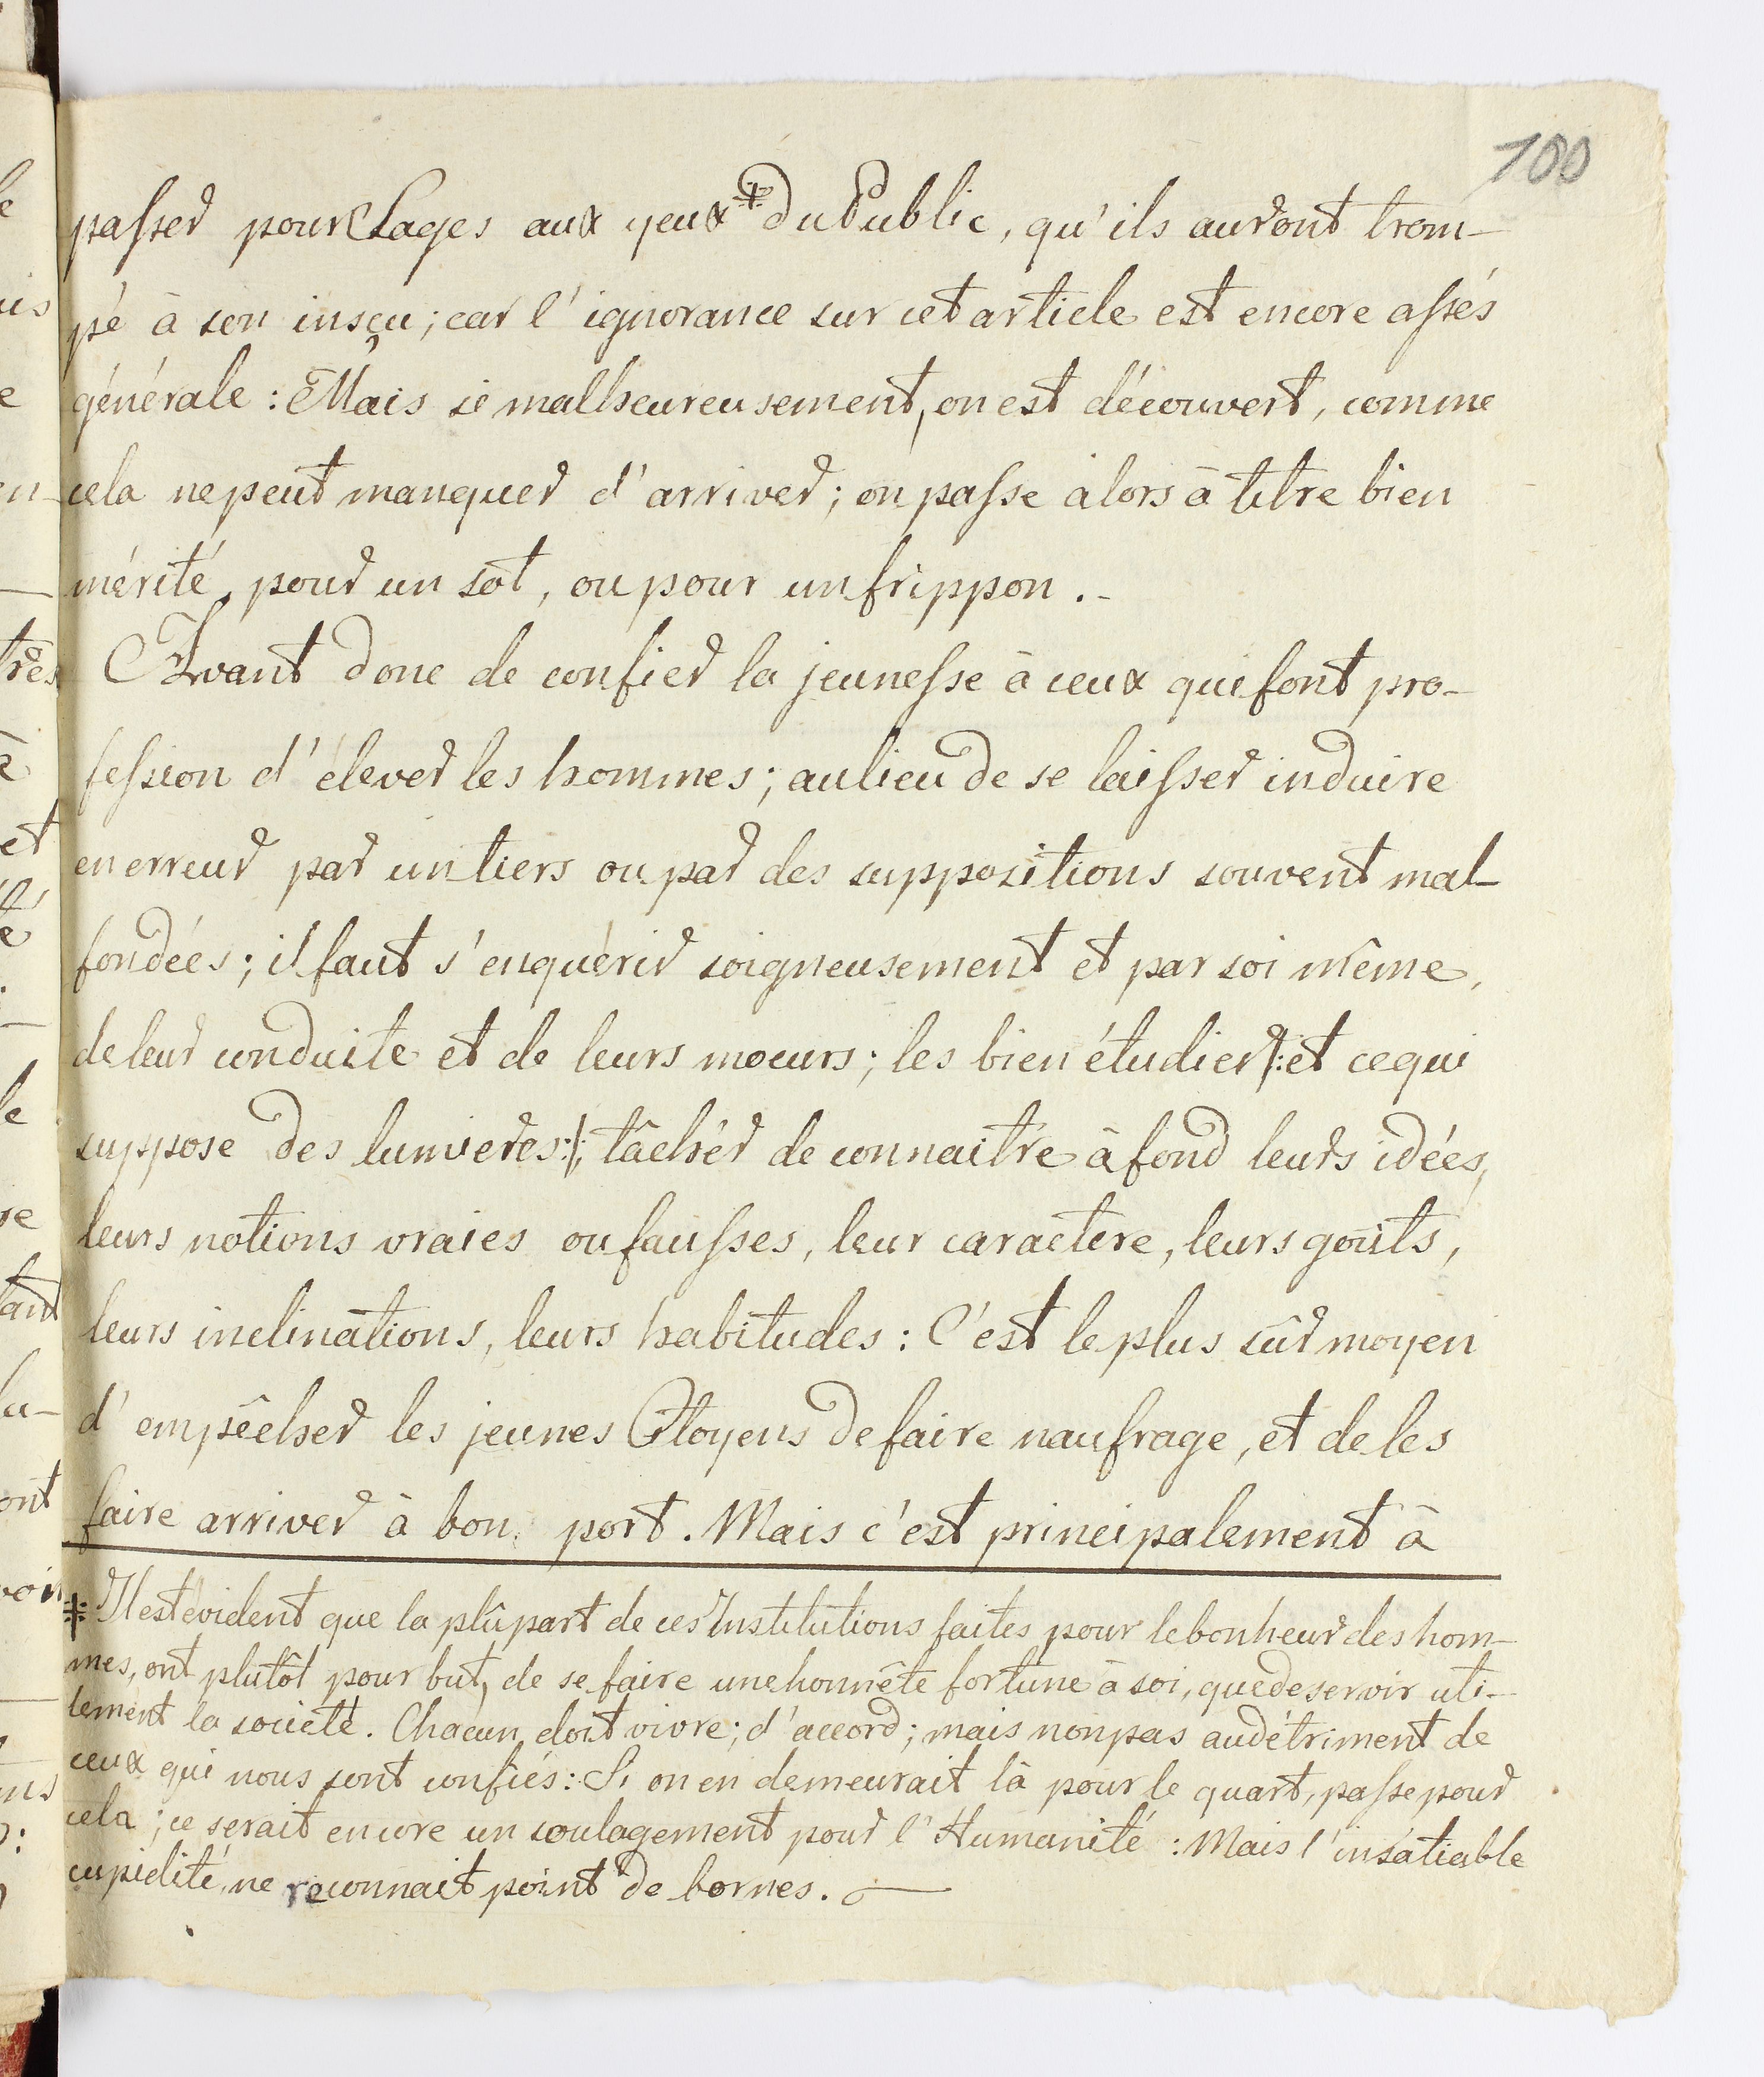 100
passer pour Sages aux yeux ‡ du Public, qu'ils auront trom-
pé à son insçu; car l'ignorance sur cet article est encore assés
générale : Mais si malheureusement, on est découvert, comme
cela ne peut manquer d'arriver; on passe alors à titre bien
mérité, pour un sot, ou pour un frippon.-
Avant donc de confier la jeunesse à ceux qui font pro-
fession d'élever les hommes; au lieu de se laisser induire
en erreur par un tiers ou par des suppositions souvent mal-
fondées; il faut s'enquérir soigneusement et par soi même,
de leur conduite et de leurs moeurs; les bien étudier /: et ce qui
suppose des lumieres :/; tâcher de connaitre à fond leurs idées,
leurs notions vraies ou fausses, leur caractere, leurs goûts,
leurs inclinations, leurs habitudes : C'est le plus sûr moyen
d'empêcher les jeunes Citoyens de faire naufrage, et de les
faire arriver à bon port. Mais c'est principalement à
‡ Il est évident que la plûpart de ces Institutions faites pour le bonheur des hom-
mes, ont plutôt pour but, de se faire une honnête fortune à soi, que de servir uti-
lement la société. Chacun doit vivre; d'accord; mais non pas au détriment de
ceux qui nous sont confiés : Si on en demeurait là pour le quart, passe pour
cela; ce serait encore un soulagement pour l'Humanité : Mais l'insatiable
cupidité, ne reconnait point de bornes.